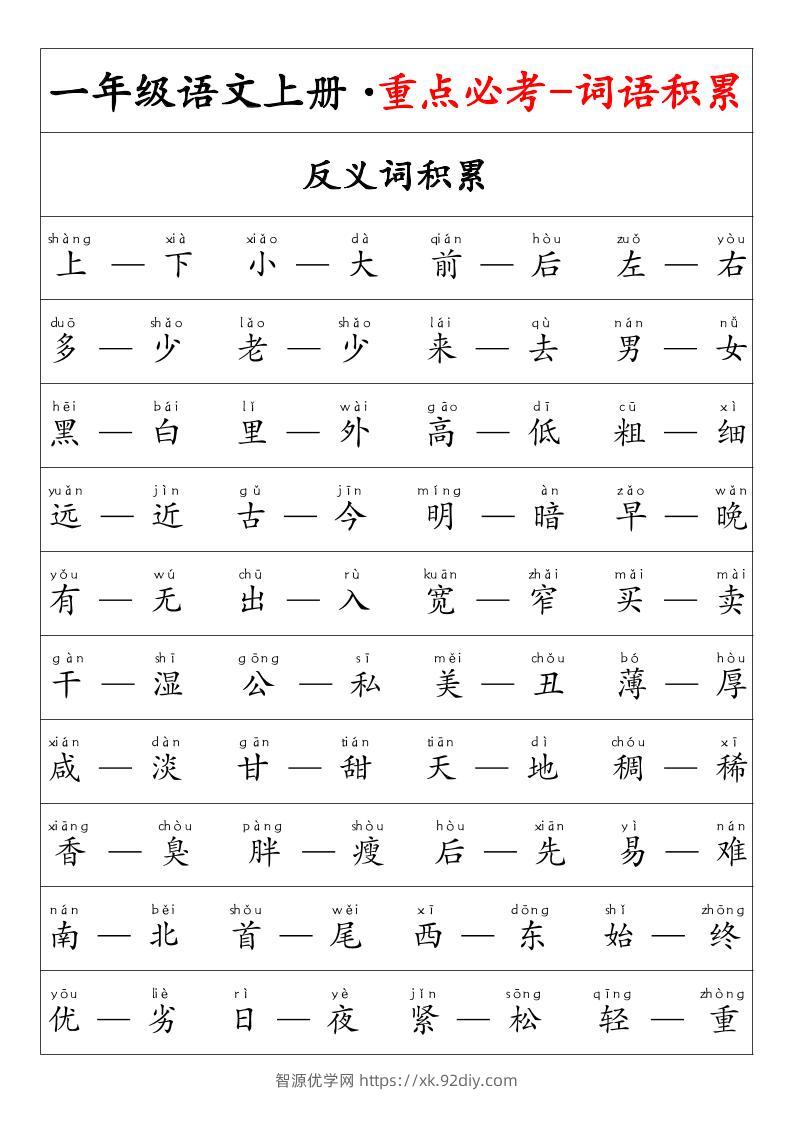 一年级语文上册·重点必考-词语积累
反义词积累
shàng xià xiǎo dà qián hòu zuǒ yòu
上 — 下 小 — 大 前 — 后 左 — 右
duō shǎo lǎo shǎo lái qù nán nǚ
多 — 少 老 — 少 来 — 去 男 — 女
hēi bái lǐ wài gāo dī cū xì
黑 — 白 里 — 外 高 — 低 粗 — 细
yuǎn jìn gǔ jīn míng àn zǎo wǎn
远 — 近 古 — 今 明 — 暗 早 — 晚
yǒu wú chū rù kuān zhǎi mǎi mài
有 — 无 出 — 入 宽 — 窄 买 — 卖
gàn shī gōng sī měi chǒu bó hòu
干 — 湿 公 — 私 美 — 丑 薄 — 厚
xián dàn gān tián tiān dì chóu xī
咸 — 淡 甘 — 甜 天 — 地 稠 — 稀
xiāng chòu pàng shòu hòu xiān yì nán
香 — 臭 胖 — 瘦 后 — 先 易 — 难
nán běi shǒu wěi xī dōng shǐ zhōng
南 — 北 首 — 尾 西 — 东 始 — 终
yōu liè rì yè jǐn sōng qīng zhòng
优 — 劣 日 — 夜 紧 — 松 轻 — 重
智源优学网 https://xk.92diy.com